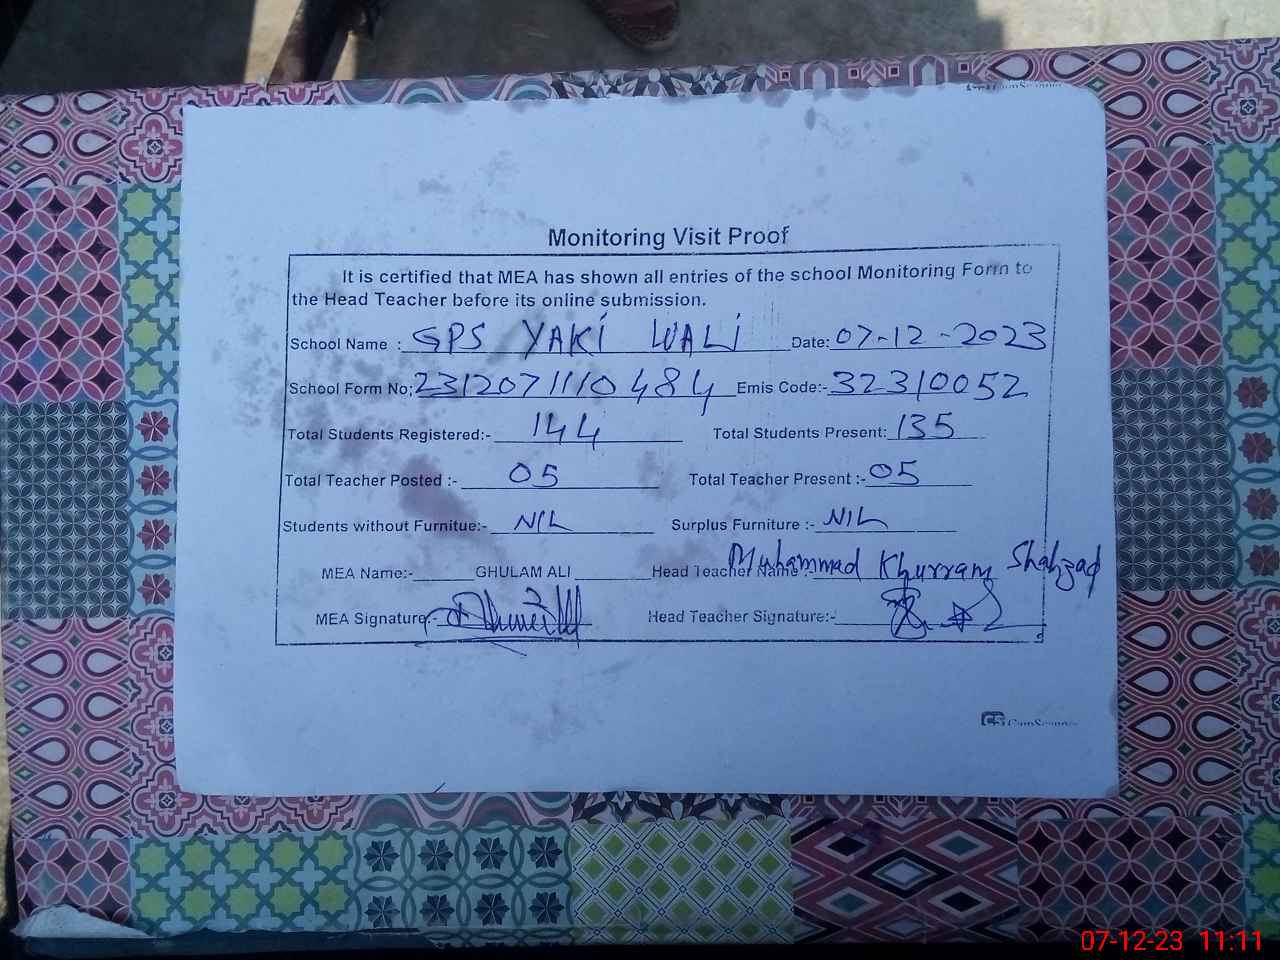 Monitoring Visit Proof
It is certified that MEA has shown all entries of the school Monitoring Form to
the Head Teacher before its online submission.
School Name : GPS YAKI WALI Date: 07-12-2023
School Form No; 2312071110484 Emis Code:- 32310052
Total Students Registered:- 144 Total Students Present: 135
Total Teacher Posted :- 05 Total Teacher Present :- 05
Students without Furnitue:- NIL Surplus Furniture :- NIL
MEA Name:- GHULAM ALI Head Teacher Name :- Muhammad Khurram Shahzad
MEA Signature:- Head Teacher Signature:-
CS CamScanner
07-12-23 11:11